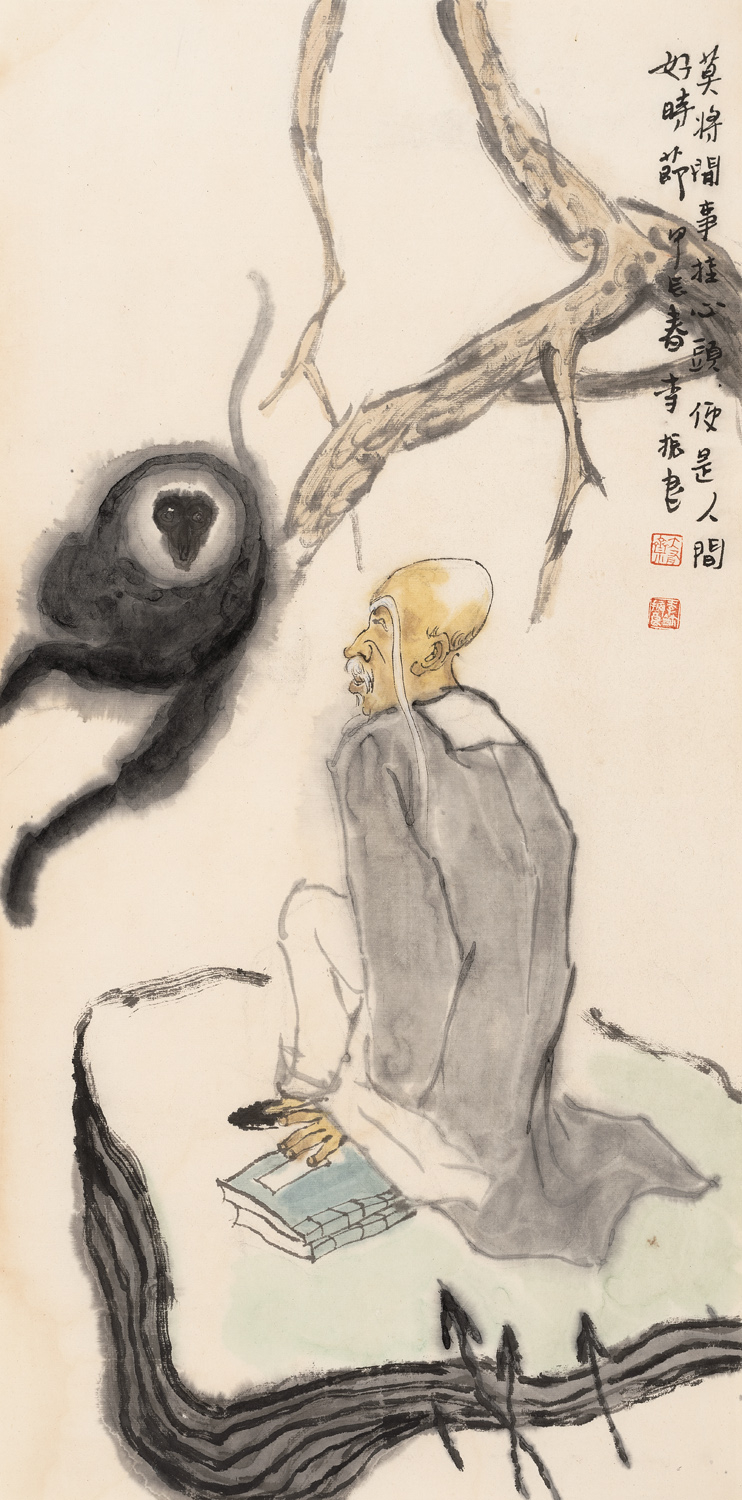 莫將閒事挂心頭便是人間
好時節甲辰春李振